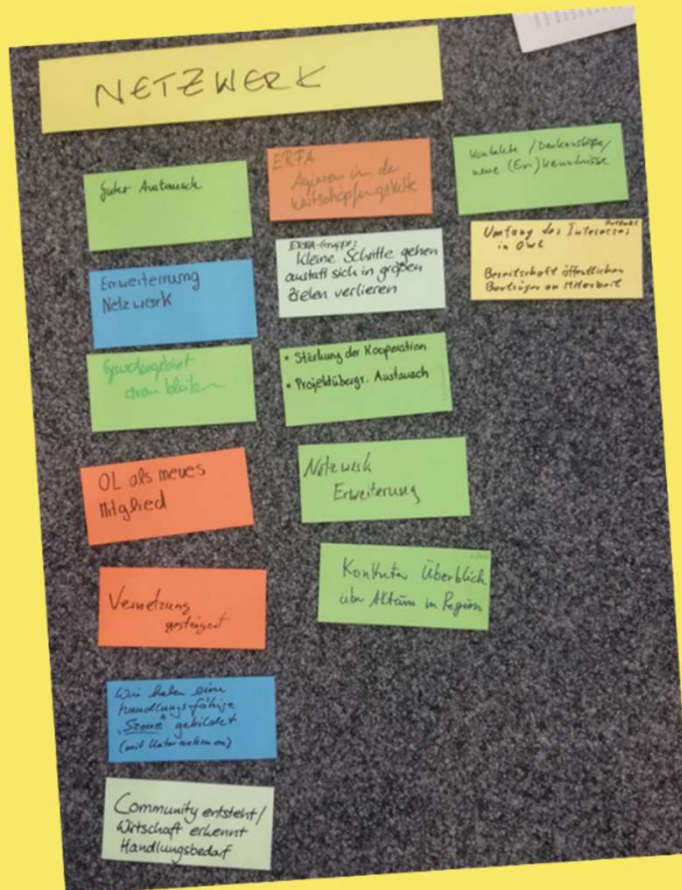 NETZWERK
guter Austausch
Erweiterung
Netzwerk
dran bleiben
OL als neues
Mitglied
Vernetzung
gesteigert
Wir haben eine
handlungsfähige
"Szene" gebildet
(mit Unternehmen)
Community entsteht/
Wirtschaft erkennt
Handlungsbedarf
ERFA
Agieren in der
Wertschöpfungskette
ERFA-Gruppe:
Kleine Schritte gehen
anstatt sich in großen
Zielen verlieren
• Stärkung der Kooperation
• Projektübergr. Austausch
Netzwerk
Erweiterung
Konkreter Überblick
über Akteure in Region
Kontakte / Denkanstöße/
neue (Er)kenntnisse
Umfang des Interesses
in OWL
Bereitschaft öffentlichen